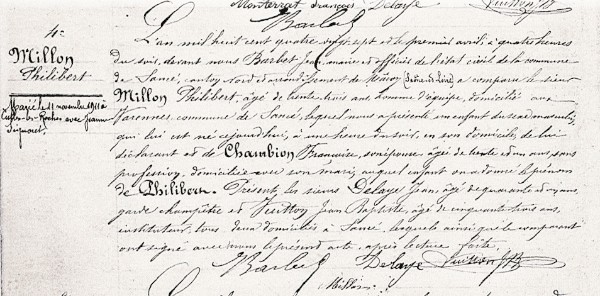 Monterrat François Delaye Vuitton
Barbet
4e
Millon
Philibert
Marié le 11 novembre 1911 à
avec Jeanne
L'an mil huit cent quatre vingt sept et le premier avril, à quatre heures
du soir, devant nous Barbet maire et officier de l'état civil de la commune
de Sancé, canton Nord et arrondissement de Mâcon (Saône et Loire) a comparu le sieur
Millon Philibert, âgé de trente trois ans homme d'équipe, domicilié aux
Varennes, commune de Sancé, lequel nous a présenté un enfant du sexe masculin,
qui lui est né cejourd'hui, à une heure du soir, en son domicile, de lui
déclarant et de Chambion Françoise, son épouse, âgée de trente et un ans, sans
profession, domiciliée avec son mari, auquel enfant on a donné le prénom
de Philibert. Présents, les sieurs Delaye Jean, âgé de quarante et un ans,
garde champêtre et Vuitton Jean Baptiste, âgé de cinquante trois ans,
instituteur, tous deux domiciliés à Sancé, lesquels ainsi que le comparant
ont signé avec nous le présent acte, après lecture faite.
Barbet Delaye Vuitton JB
Millon